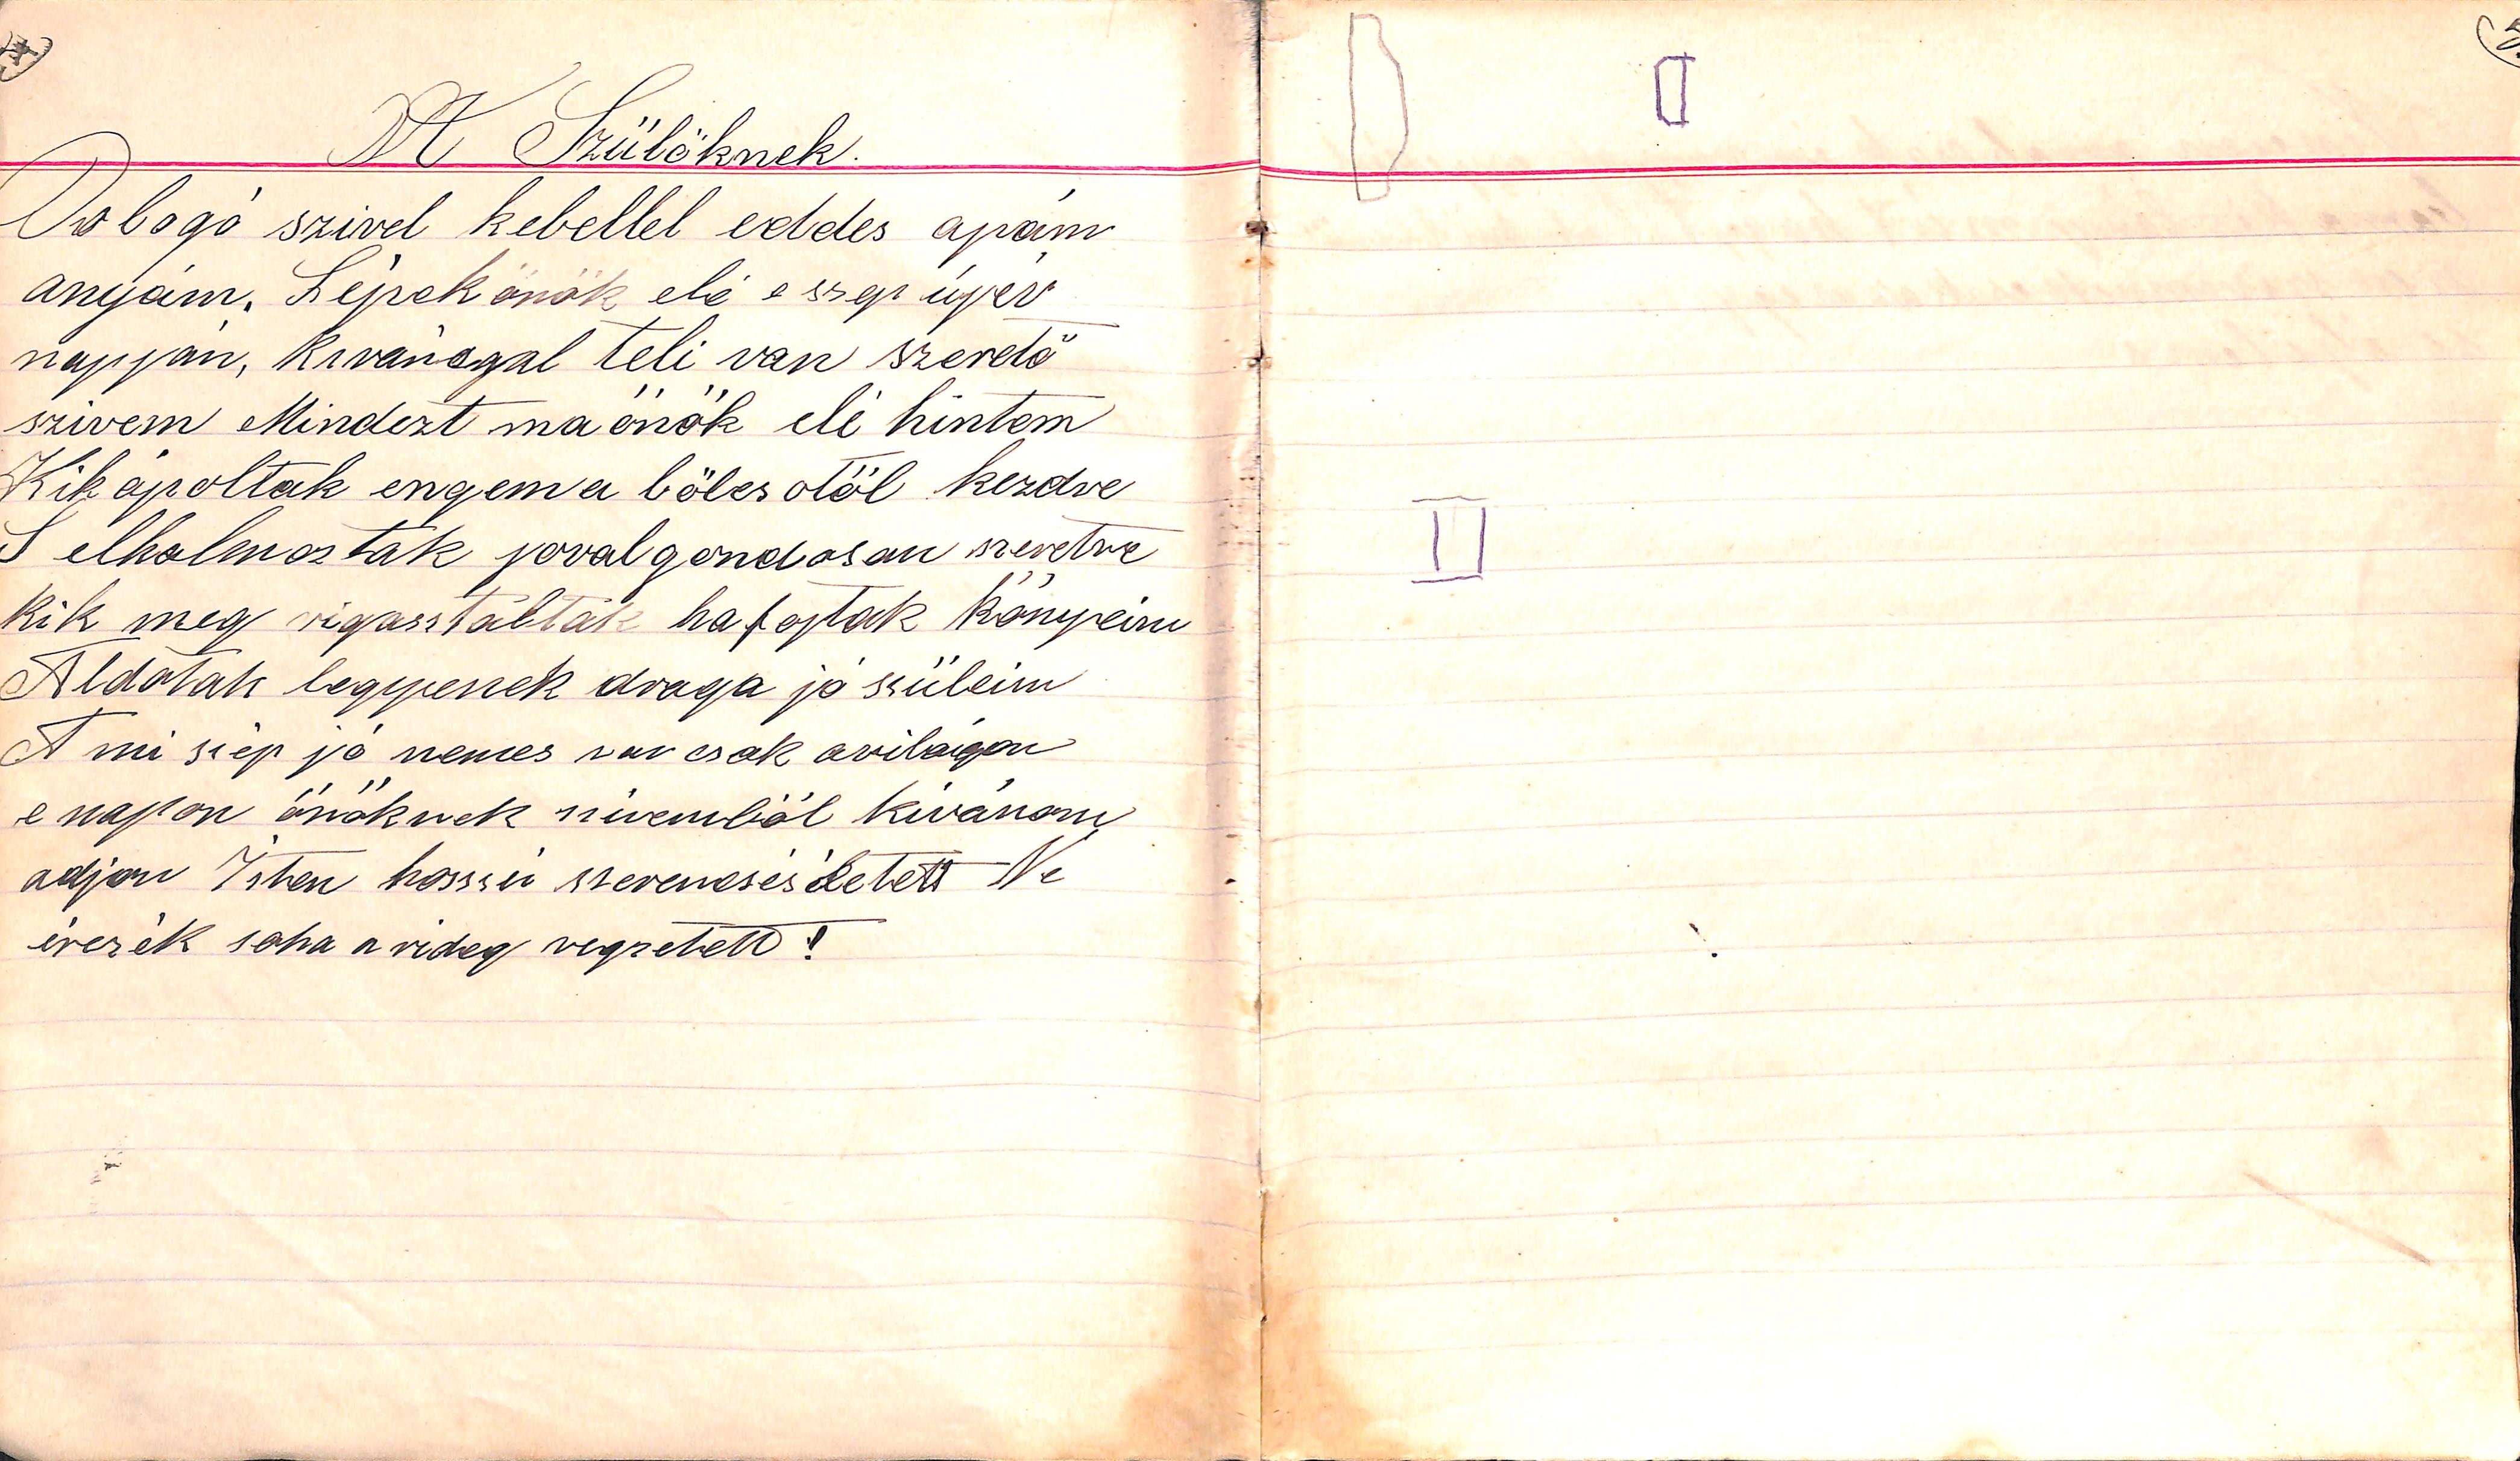 A Szülőknek.
Dobogó szivel kebellel eddes apám
anyám. Lépek önök elé e szep újév
napján, kivánsgal teli van szerető
szivem Mindezt ma önök elé hintem
Kik ápoltak engem a bölcsötöl kezdve
S elhalmoztak joval gondosan szeretve
kik meg vigassztáltak ha fojtak könyeim
Áldotak legyenek draga jó szüleim
A mi szép jó nemes van csak avilágon
e napon önöknek szivemböl kivánom
adjon Isten hosszú szerencsés életett Ne
érezék soha a rideg vegzetett!
II